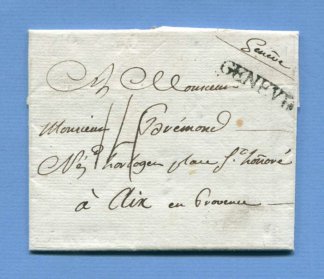 Genève
GENEVE
A Monsieur
Monsieur Brémond
Horloger place St. honoré
à Aix en Provence